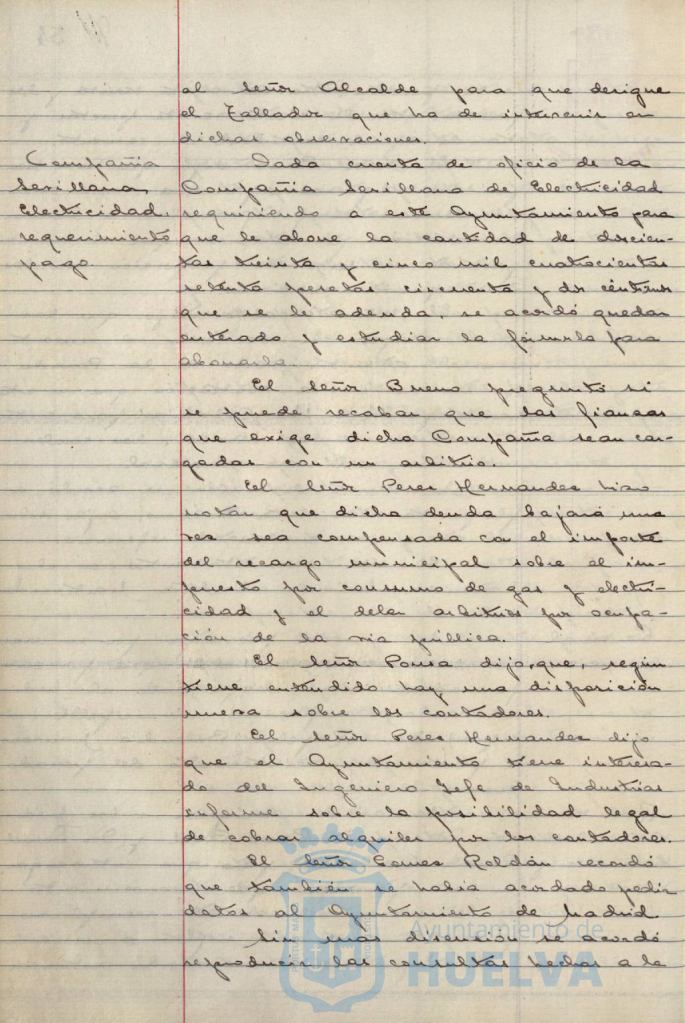 al señor Alcalde para que designe
el Tallador que ha de intervenir en
dichas observaciones.
Compañía
Sevillana
Electricidad.
requerimiento
pago
Dada cuenta de oficio de la
Compañia Sevillana de Electricidad
requiriendo a este Ayuntamiento para
que le abone la cantidad de doscien-
tas treinta y cinco mil cuatrocientas
setenta pesetas cincuenta y dos céntimos
que se le adeuda, se acordó quedar
enterado y estudiar la fórmula para
abonarla.
El señor Bueno preguntó si
se puede recabar que las fianzas
que exige dicha Compañia sean car-
gadas con un arbitrio.
El señor Perez Hernandez hizo
notar que dicha deuda bajará una
vez sea compensada con el importe
del recargo municipal sobre el im-
puesto por consumo de gas y electri-
cidad y el de los arbitrios por ocupa-
ción de la via pública.
El señor Ponsa dijo, que, según
tiene entendido hay una disposición
nueva sobre los contadores.
El señor Perez Hernandez dijo
que el Ayuntamiento tiene interesa-
do del Ingeniero Jefe de Industrias
informe sobre la posibilidad legal
de cobrar alquiler por los contadores.
El señor Gomez Roldán recordó
que también se habia acordado pedir
datos al Ayuntamiento de Madrid
Sin mas discusión se acordó
reproducir las consultas hechas a la
Ayuntamiento de
HUELVA